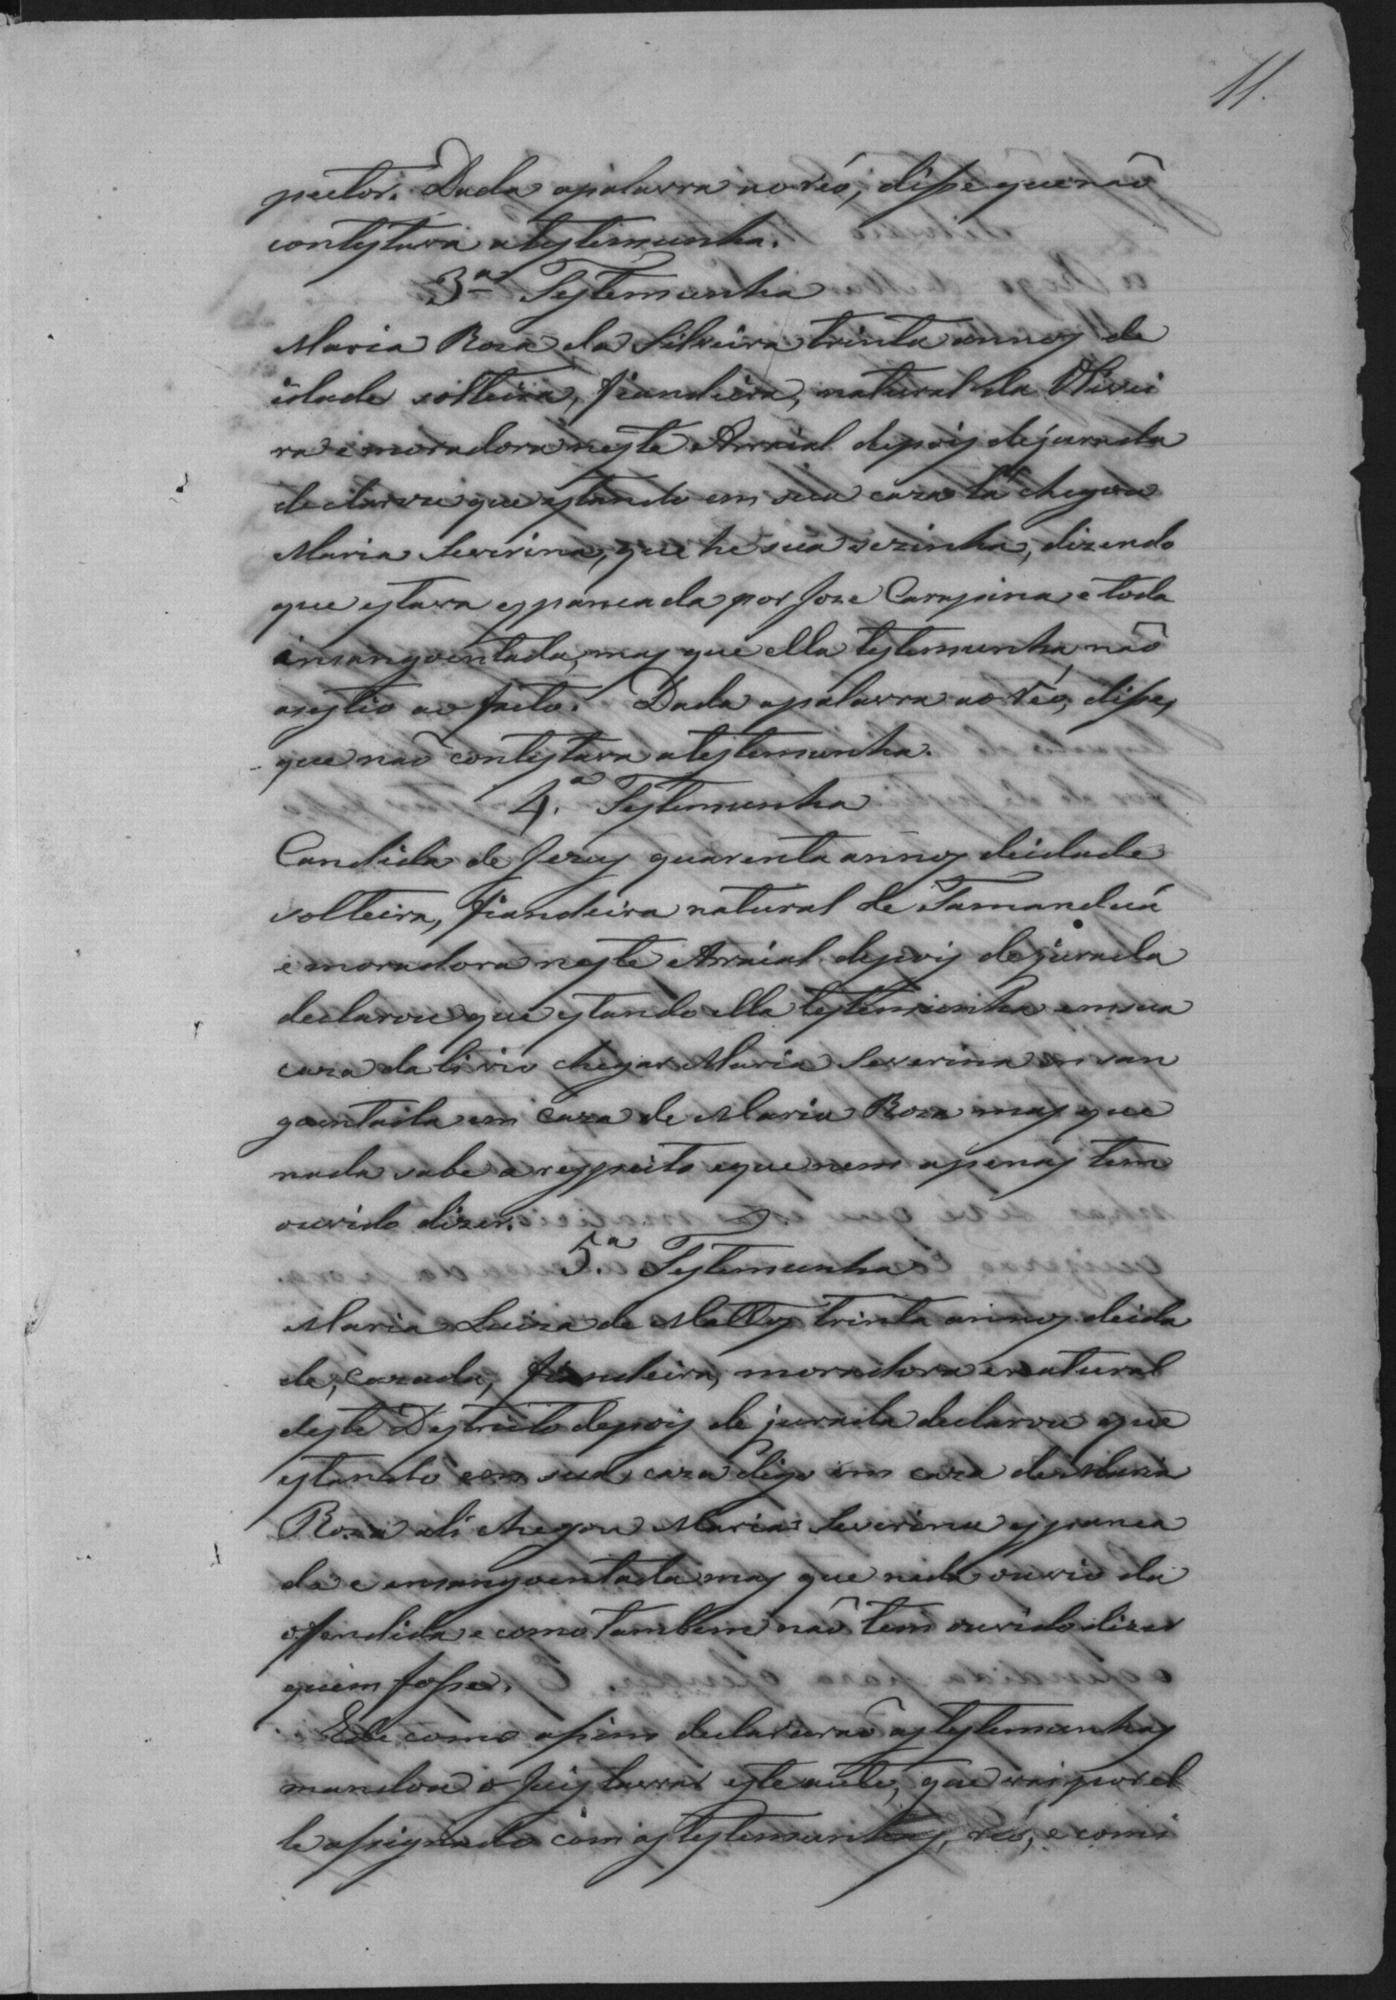 11.
pector. Dada apalavra ao réo, disse que não
contestava atestemunha.
3ª Testemunha
Maria Roza da Silveira trinta annos de
idade solteira, fiandeira, natural da Olivei
ra e moradora neste Arraial depois dejurada
declarou que estando em sua caza lá chegou
Maria Severina, que he sua vezinha, dizendo
que estava espancada por Joze Carapina e toda
insangoentada, mas que ella testemunha não
asestio ao facto. Dada apalavra ao réo, disse,
que não contestava atestemunha.
4.ª Testemunha
Candida de Jezus quarenta annos deidade
solteira, fiandeira natural de Tamanduá
e moradora neste Arraial depois dejurada
declarou que estando ella testemunha emsua
caza dali vio chegar Maria Severina ensan
goentada em caza de Maria Roza mas que
nada sabe arespeito eque nem apenas tem
ouvido dizer.
5.ª Testemunha
Maria Luiza de Mattos trinta annos deida
de, cazada, fiandeira, moradora enatural
deste Destricto depois de jurada declarou que
estando em sua caza digo em caza de Maria
Roza ali chegou Maria Severina espanca
da e ensangoentada mas que nada ouvio da
offendida e como tambem não tem ouvidodizer
quem fosse.
E de como assim declararaõ as testemunhas
mandou o Juis lavrar este auto, que vai por el
le assignado com as testemunhas, réo, e comi